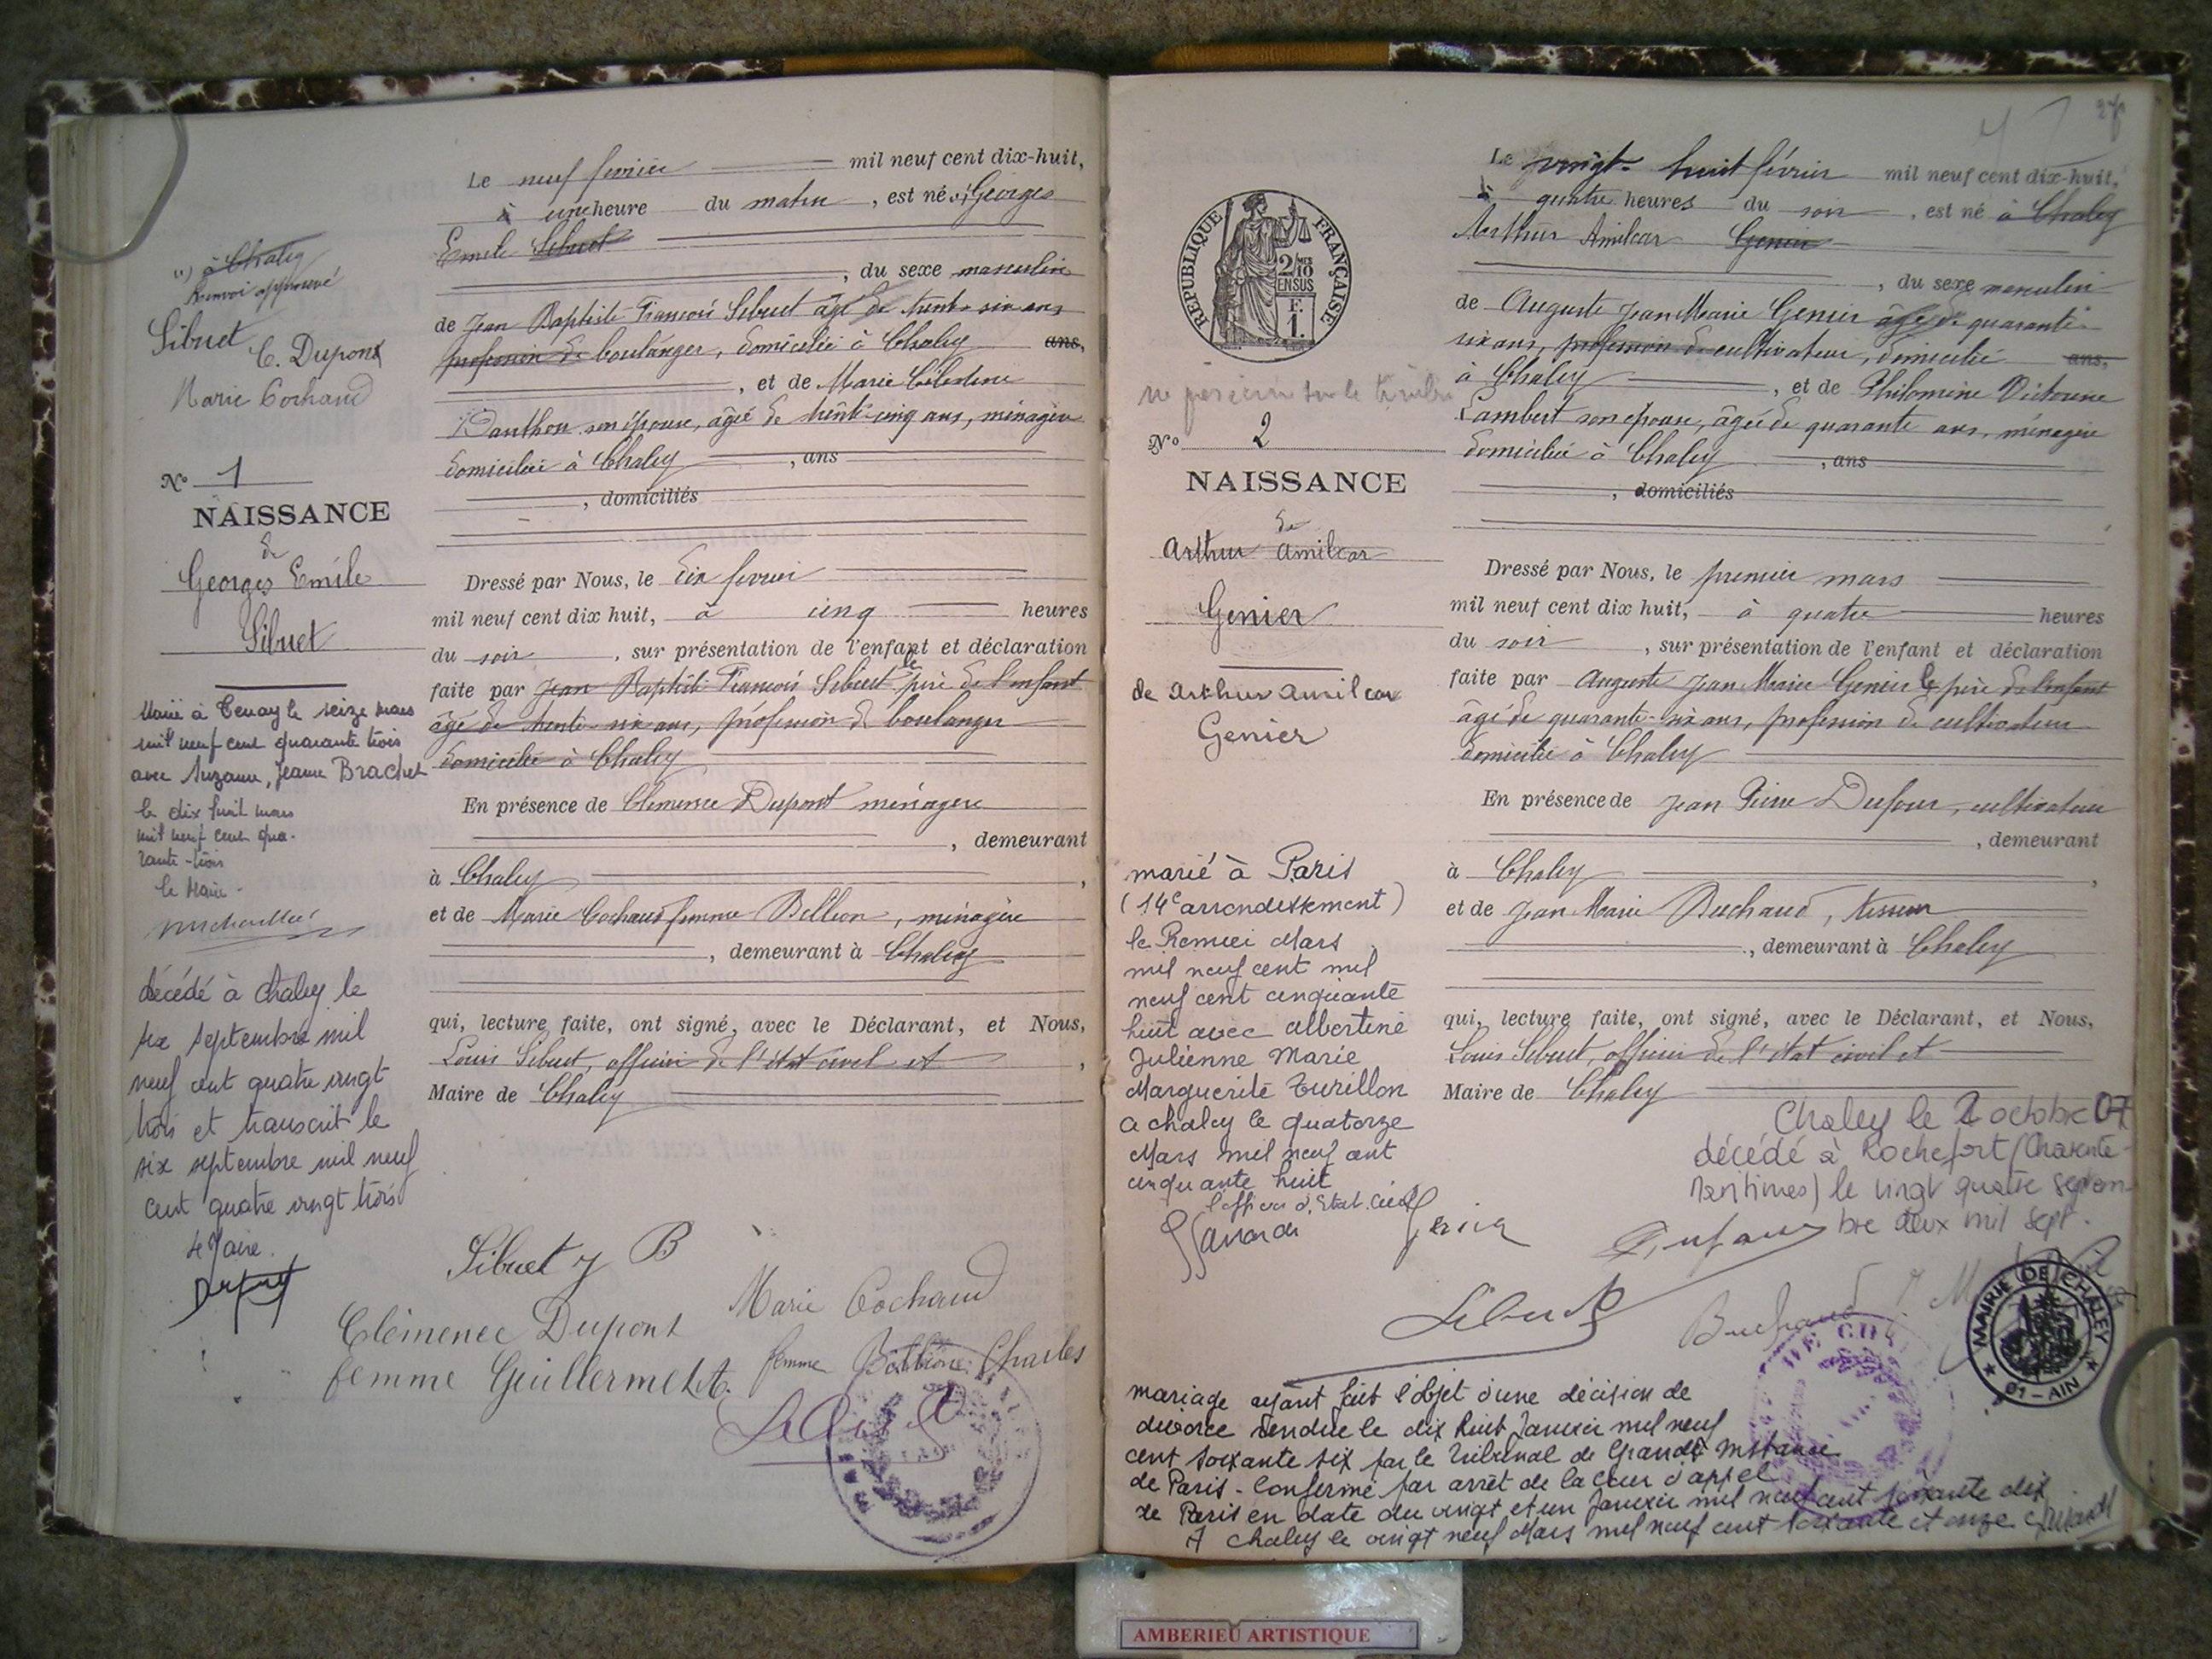 Le neuf fevrier mil neuf cent dix-huit,
à une heure du matin, est né (1) Georges
Emile Sibuet
, du sexe masculin
de Jean Baptiste François Sibuet âgé de trente-six ans
profession de boulanger, domicilié à Chaley ans,
, et de Marie Célestine
Danthon son épouse, âgée de trente-cinq ans, ménagère
domiciliée à Chaley , ans
, domiciliés
Dressé par Nous, le dix fevrier
mil neuf cent dix huit, à cinq heures
du soir , sur présentation de l'enfant et déclaration
faite par Jean Baptiste François Sibuet le père de l'enfant
âgé de trente-six ans, profession de boulanger
domicilié à Chaley
En présence de Clémence Dupont ménagère
, demeurant
à Chaley ,
et de Marie Cochaud femme Bellion, ménagère
, demeurant à Chaley
qui, lecture faite, ont signé, avec le Déclarant, et Nous,
Louis Sibuet, officier de l'état civil et ,
Maire de Chaley
(1) à Chaley
Renvoi approuvé
Sibuet C. Dupont
Marie Cochaud
No 1
NAISSANCE
de
Georges Emile
Sibuet
Marié à Tenay le seize mars
mil neuf cent quarante trois
avec Suzanne, Jeanne Brachet
le dix huit mars
mil neuf cent qua-
rante-trois
le Maire.
décédé à Chaley le
six septembre mil
neuf cent quatre vingt
trois et transcrit le
six septembre mil neuf
cent quatre vingt trois
le Maire.
Sibuet J B
Marie Cochaud
Clémence Dupont
femme Guillermet femme Charles
Le vingt-huit février mil neuf cent dix-huit,
à quatre heures du soir , est né à Chaley
Arthur Amilcar Genier
, du sexe masculin
de Auguste Jean Marie Genier âgé de quarante-
six ans, profession de cultivateur, domicilié ans,
à Chaley , et de Philomine Victorine
Lambert son épouse, âgée de quarante ans, ménagère
domiciliée à Chaley , ans
, domiciliés
Dressé par Nous, le premier mars
mil neuf cent dix huit, à quatre heures
du soir , sur présentation de l'enfant et déclaration
faite par Auguste Jean Marie Genier le père de l'enfant
âgé de quarante-six ans, profession de cultivateur
domicilié à Chaley
En présence de Jean Pierre Dufour, cultivateur
, demeurant
à Chaley ,
et de Jean Marie Buchaud, tisseur
, demeurant à Chaley
qui, lecture faite, ont signé, avec le Déclarant, et Nous,
Louis Sibuet, officier de l'état civil et
Maire de Chaley
REPUBLIQUE FRANÇAISE
2/10 EN SUS
F.
1.
No 2
NAISSANCE
de
Arthur Amilcar
Genier
de Arthur Amilcar
Genier
marié à Paris
(14e arrondissement)
le Premier Mars
mil neuf cent mil
neuf cent cinquante
huit avec Albertine
Julienne Marie
Marguerite Turillon
A Chaley le quatorze
Mars mil neuf cent
cinquante huit
l'officier d'Etat Civil
Chaley le 2 octobre 07
décédé à Rochefort (Charente-
Maritimes) le vingt quatre septem-
bre deux mil sept.
Genier
Dufour
Sibuet
Buchaud
MAIRIE DE CHALEY
01 - AIN
mariage ayant fait l'objet d'une décision de
divorce rendue le dix huit Janvier mil neuf
cent soixante six par le Tribunal de Grande Instance
de Paris - Confirmé par arrêt de la Cour d'appel
de Paris en date du vingt et un Janvier mil neuf cent soixante dix
A Chaley le vingt neuf Mars mil neuf cent soixante et onze
AMBERIEU ARTISTIQUE